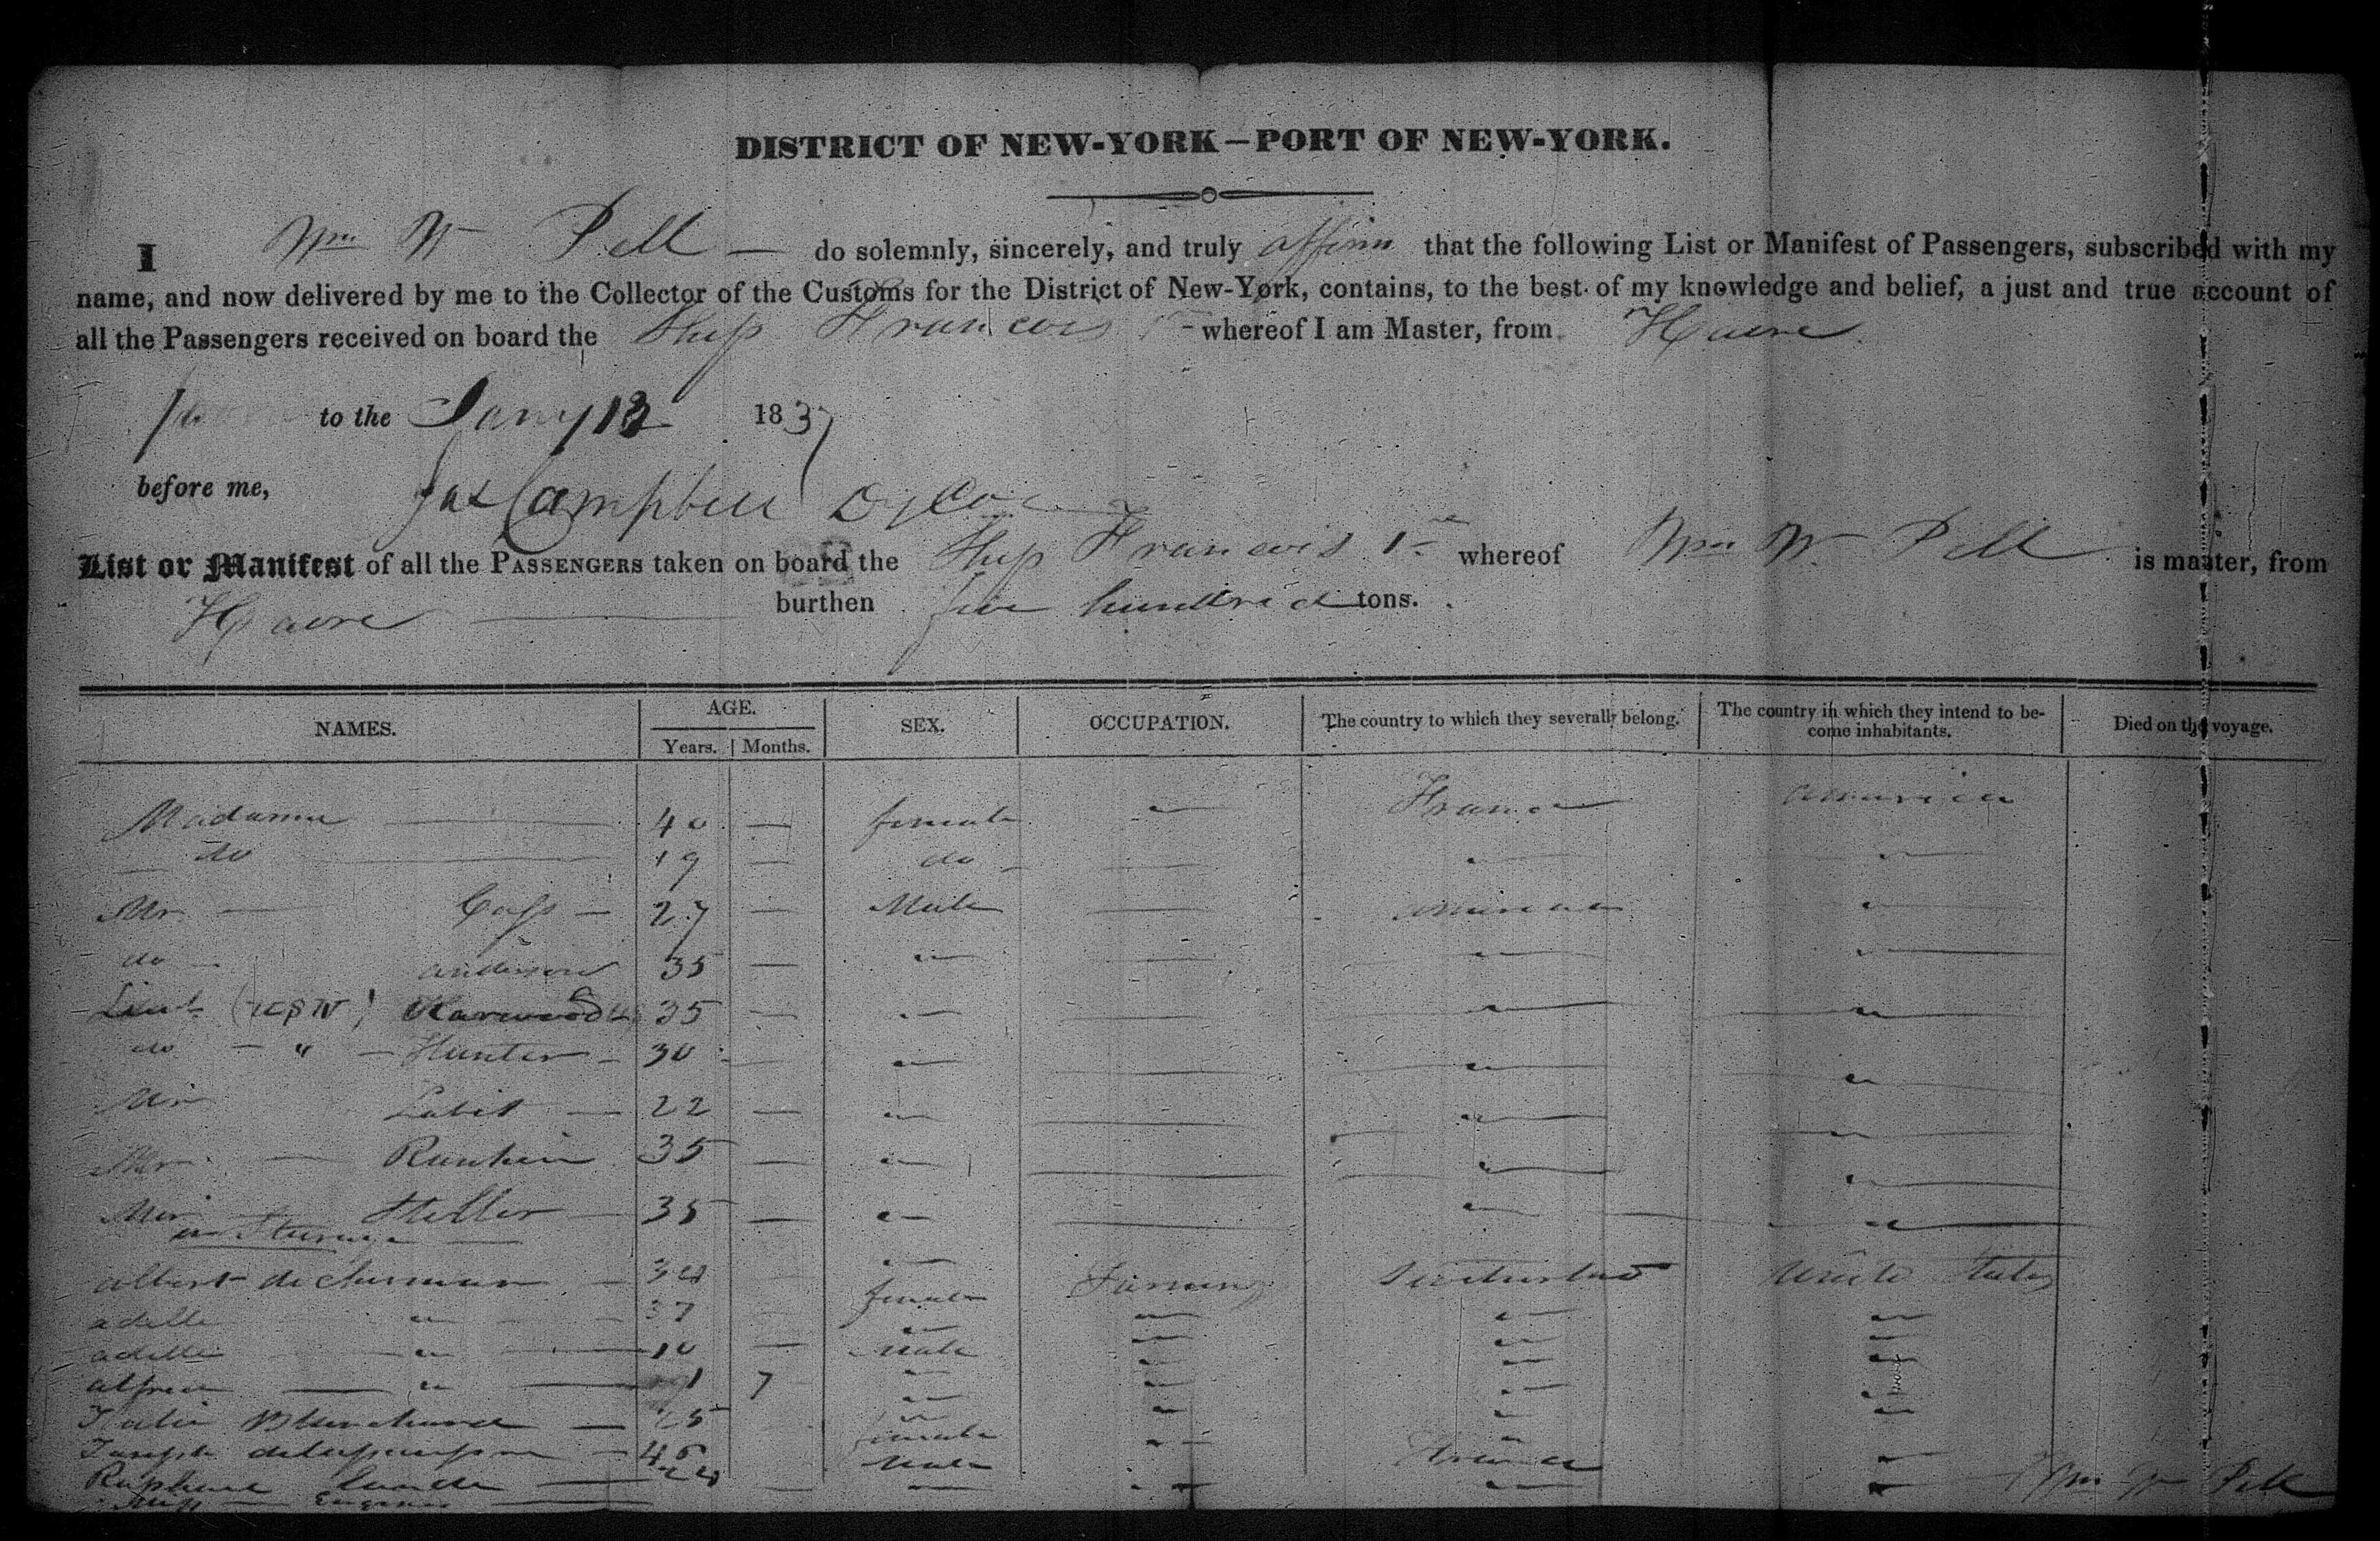 DISTRICT OF NEW-YORK—PORT OF NEW-YORK.
I Wm W Pell — do solemnly, sincerely, and truly affirm that the following List or Manifest of Passengers, subscribed with my
name, and now delivered by me to the Collector of the Customs for the District of New-York, contains, to the best of my knowledge and belief, a just and true account of
all the Passengers received on board the Ship Francois 1re whereof I am Master, from Havre
to the Jany 13 1837
before me, Jas Campbell Dy Col
List or Manifest of all the PASSENGERS taken on board the Ship Francois 1re whereof Wm W. Pell is master, from
Havre — burthen five hundred tons.
NAMES. AGE. SEX. OCCUPATION. The country to which they severally belong. The country in which they intend to become inhabitants. Died on the voyage.
Years. Months.
Madame — 40 — female " France America
do — 19 — do — " "
Mr — Cass — 27 — Male — American "
do — Anderson 35 — " — " "
Lieut (USN) 35 — " — " "
do — " — Hunter — 30 — " — " "
Mr — 22 — " — " "
Mr — Rankin 35 — " — " "
Mr — Heller — 35 — " — " "
in Steerage —
albert — 34 " Farming United States
adelle " — 37 female " " "
adelle — " — 10 — " " " "
alfred — " — 1 7 male " " "
— 25 " " " "
Joseph — 45 female " " "
— male " France "
— " " " "
Wm W Pell